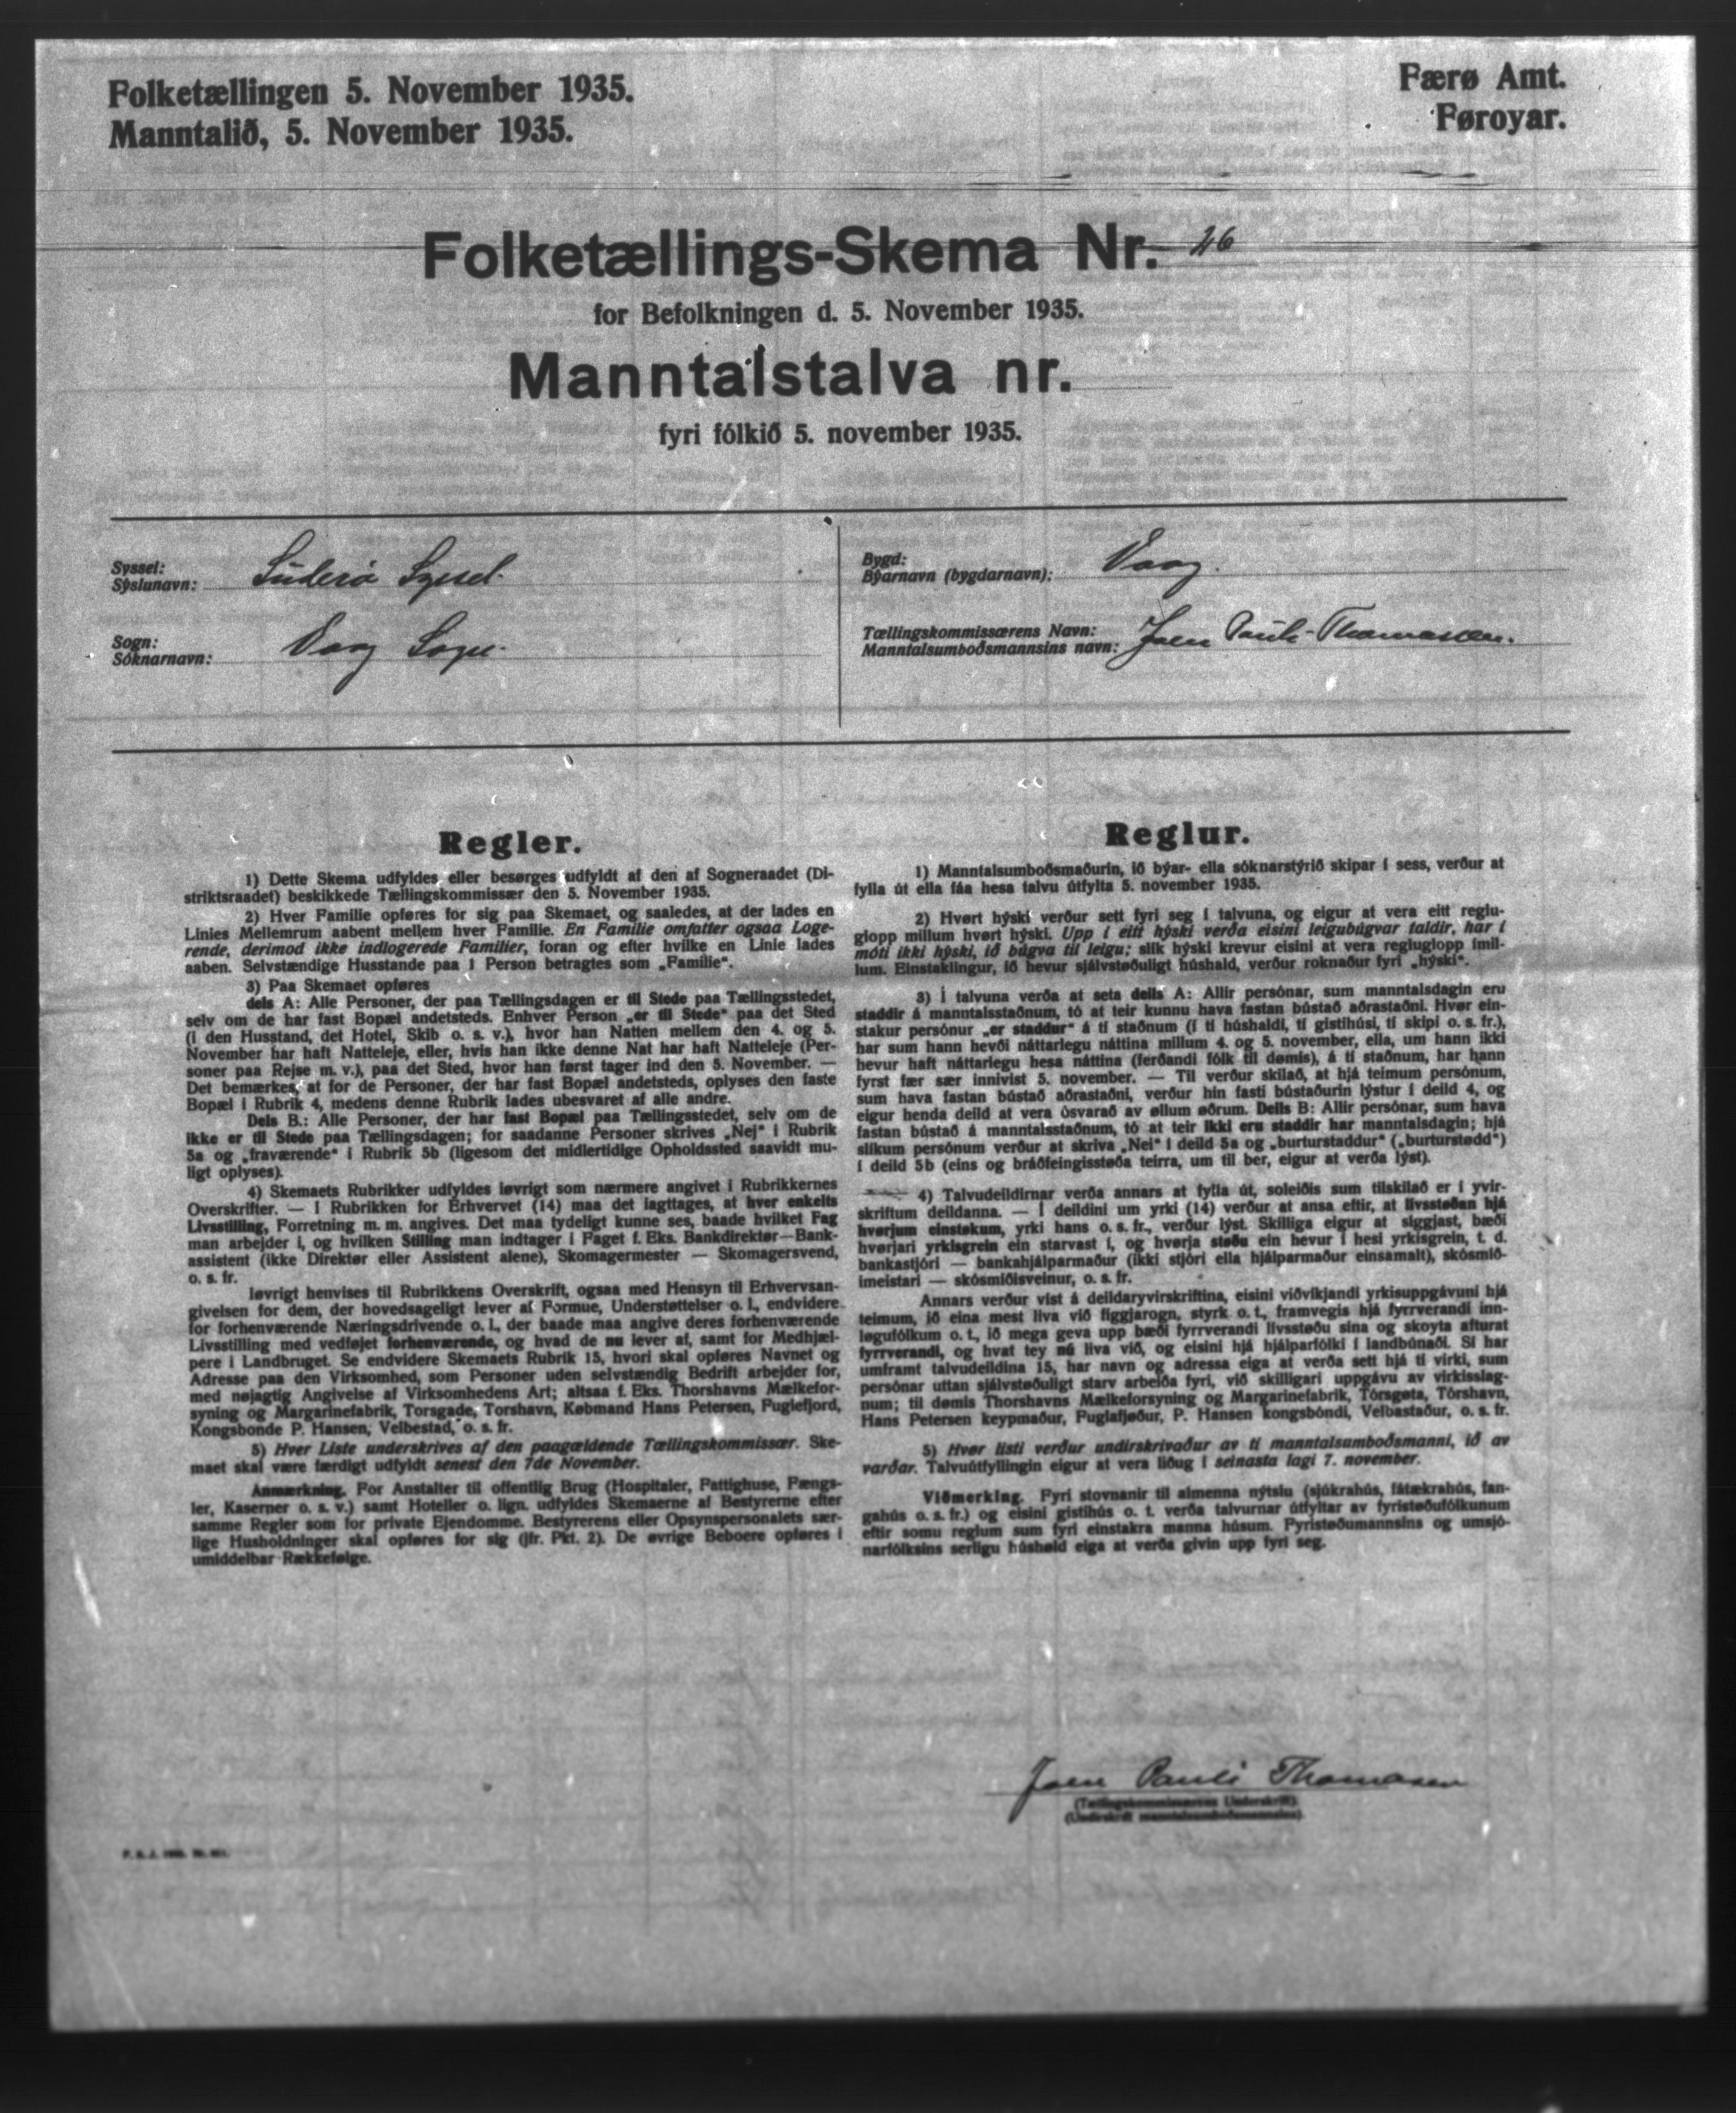 Folketællingen 5. November 1935.
Manntalið, 5. November 1935.
Færø Amt.
Føroyar.
Folketællings-Skema Nr. 26
for Befolkningen d. 5. November 1935.
Manntalstalva nr.
fyri fólkið 5. november 1935.
Syssel:
Sýslunavn: Suderø Syssel.
Sogn:
Sóknarnavn: Vaag Sogn.
Bygd:
Býarnavn (bygdarnavn): Vaag.
Tællingskommissærens Navn:
Manntalsumboðsmannsins navn: Joen Pauli Thomasen.
Regler.
1) Dette Skema udfyldes eller besørges udfyldt af den af Sogneraadet (Di-
striktsraadet) beskikkede Tællingskommissær den 5. November 1935.
2) Hver Familie opføres for sig paa Skemaet, og saaledes, at der lades en
Linies Mellemrum aabent mellem hver Familie. En Familie omfatter ogsaa Loge-
rende, derimod ikke indlogerede Familier, foran og efter hvilke en Linie lades
aaben. Selvstændige Husstande paa 1 Person betragtes som „Familie“.
3) Paa Skemaet opføres
dels A: Alle Personer, der paa Tællingsdagen er til Stede paa Tællingsstedet,
selv om de har fast Bopæl andetsteds. Enhver Person „er til Stede“ paa det Sted
(i den Husstand, det Hotel, Skib o. s. v.), hvor han Natten mellem den 4. og 5.
November har haft Natteleje, eller, hvis han ikke denne Nat har haft Natteleje (Per-
soner paa Rejse m. v.), paa det Sted, hvor han først tager ind den 5. November. —
Det bemærkes, at for de Personer, der har fast Bopæl andetsteds, oplyses den faste
Bopæl i Rubrik 4, medens denne Rubrik lades ubesvaret af alle andre.
Dels B.: Alle Personer, der har fast Bopæl paa Tællingsstedet, selv om de
ikke er til Stede paa Tællingsdagen; for saadanne Personer skrives „Nej“ i Rubrik
5a og „fraværende“ i Rubrik 5b (ligesom det midlertidige Opholdssted saavidt mu-
ligt oplyses).
4) Skemaets Rubrikker udfyldes iøvrigt som nærmere angivet i Rubrikkernes
Overskrifter. — I Rubrikken for Erhvervet (14) maa det iagttages, at hver enkelts
Livsstilling, Forretning m. m. angives. Det maa tydeligt kunne ses, baade hvilket Fag
man arbejder i, og hvilken Stilling man indtager i Faget f. Eks. Bankdirektør—Bank-
assistent (ikke Direktør eller Assistent alene), Skomagermester — Skomagersvend,
o. s. fr.
Iøvrigt henvises til Rubrikkens Overskrift, ogsaa med Hensyn til Erhvervsan-
givelsen for dem, der hovedsageligt lever af Formue, Understøttelser o. l., endvidere
for forhenværende Næringsdrivende o. l., der baade maa angive deres forhenværende
Livsstilling med vedføjet forhenværende, og hvad de nu lever af, samt for Medhjæl-
pere i Landbruget. Se endvidere Skemaets Rubrik 15, hvori skal opføres Navnet og
Adresse paa den Virksomhed, som Personer uden selvstændig Bedrift arbejder for,
med nøjagtig Angivelse af Virksomhedens Art; altsaa f. Eks. Thorshavns Mælkefor-
syning og Margarinefabrik, Torsgade, Torshavn, Købmand Hans Petersen, Fuglefjord,
Kongsbonde P. Hansen, Velbestad, o. s. fr.
5) Hver Liste underskrives af den paagældende Tællingskommissær. Ske-
maet skal være færdigt udfyldt senest den 7de November.
Anmærkning. For Anstalter til offentlig Brug (Hospitaler, Fattighuse, Fængs-
ler, Kaserner o. s. v.) samt Hoteller o. lign. udfyldes Skemaerne af Bestyrerne efter
samme Regler som for private Ejendomme. Bestyrerens eller Opsynspersonalets sær-
lige Husholdninger skal opføres for sig (jfr. Pkt. 2). De øvrige Beboere opføres i
umiddelbar Rækkefølge.
Reglur.
1) Manntalsumboðsmaðurin, ið býar- ella sóknarstýrið skipar í sess, verður at
fylla út ella fáa hesa talvu útfylta 5. november 1935.
2) Hvørt hýski verður sett fyri seg í talvuna, og eigur at vera eitt reglu-
glopp millum hvørt hýski. Upp í eitt hýski verða eisini leigubúgvar taldir, har í
móti ikki hýski, ið búgva til leigu; slik hýski krevur eisini at vera regluglopp ímil-
lum. Einstaklingur, ið hevur sjálvstøðuligt húshald, verður roknaður fyri „hýski“.
3) Í talvuna verða at seta deils A: Allir persónar, sum manntalsdagin eru
staddir á manntalsstaðnum, tó at teir kunnu hava fastan bústað aðrastaðni. Hvør ein-
stakur persónur „er staddur“ á tí staðnum (í tí húshaldi, tí gistihúsi, tí skipi o. s. fr.),
har sum hann hevði náttarlegu náttina millum 4. og 5. november, ella, um hann ikki
hevur haft náttarlegu hesa náttina (ferðandi fólk til dømis), á tí staðnum, har hann
fyrst fær sær innivist 5. november. — Til verður skilað, at hjá teimum persónum,
sum hava fastan bústað aðrastaðni, verður hin fasti bústaðurin lýstur í deild 4, og
eigur henda deild at vera ósvarað av øllum øðrum. Deils B: Allir persónar, sum hava
fastan bústað á manntalsstaðnum, tó at teir ikki eru staddir har manntalsdagin; hjá
slíkum persónum verður at skriva „Nei“ í deild 5a og „burturstaddur“ („burturstødd“)
í deild 5b (eins og bráðfeingisstøða teirra, um til ber, eigur at verða lýst).
4) Talvudeildirnar verða annars at fylla út, soleiðis sum tilskilað er í yvir-
skriftum deildanna. — Í deildini um yrki (14) verður at ansa eftir, at livsstøðan hjá
hvørjum einstøkum, yrki hans o. s. fr., verður lýst. Skilliga eigur at siggjast, bæði
hvørjari yrkisgrein ein starvast í, og hvørja støðu ein hevur í hesi yrkisgrein, t. d.
bankastjóri — bankahjálparmaður (ikki stjóri ella hjálparmaður einsamalt), skósmið-
imeistari — skósmiðisveinur, o. s. fr.
Annars verður víst á deildaryvirskriftina, eisini viðvíkjandi yrkisuppgávuni hjá
teimum, ið eina mest liva við figgjarogn, styrk o. t., framvegis hjá fyrrverandi inn-
løgufólkum o. t., ið mega geva upp bæði fyrrverandi livsstøðu sína og skoyta afturat
fyrrverandi, og hvat tey nú liva við, og eisini hjá hjálparfólki í landbúnaði. Sí har
umframt talvudeildina 15, har navn og adressa eiga at verða sett hjá tí virki, sum
persónar uttan sjálvstøðuligt starv arbeiða fyri, við skilligari uppgávu av virkisslag-
num; til dømis Thorshavns Mælkeforsyning og Margarinefabrik, Tórsgøta, Tórshavn,
Hans Petersen keypmaður, Fuglafjøður, P. Hansen kongsbóndi, Velbastaður, o. s. fr.
5) Hvør listi verður undirskrivaður av tí manntalsumboðsmanni, ið av
varðar. Talvuútfyllingin eigur at vera liðug í seinasta lagi 7. november.
Viðmerking. Fyri stovnanir til almenna nýtslu (sjúkrahús, fátækrahús, fan-
gahús o. s. fr.) og eisini gistihús o. t. verða talvurnar útfyltar av fyristøðufólkunum
eftir somu reglum sum fyri einstakra manna húsum. Fyristøðumannsins og umsjó-
narfólksins serligu húshald eiga at verða givin upp fyri seg.
Joen Pauli Thomasen
(Tællingskommissærens Underskrift)
(Undirskrift manntalsumboðsmannsins)